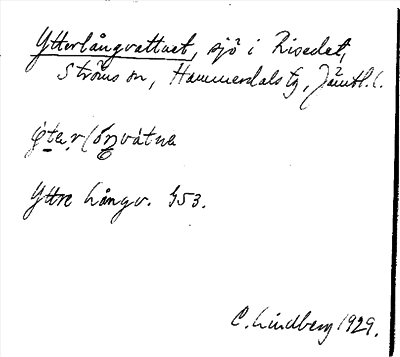 Ytterlångvattnet, sjö i Risedet,
Ströms sn, Hammerdals tg, Jämtl. l.
Yttre Långv. G53.
C. Lindberg 1929.